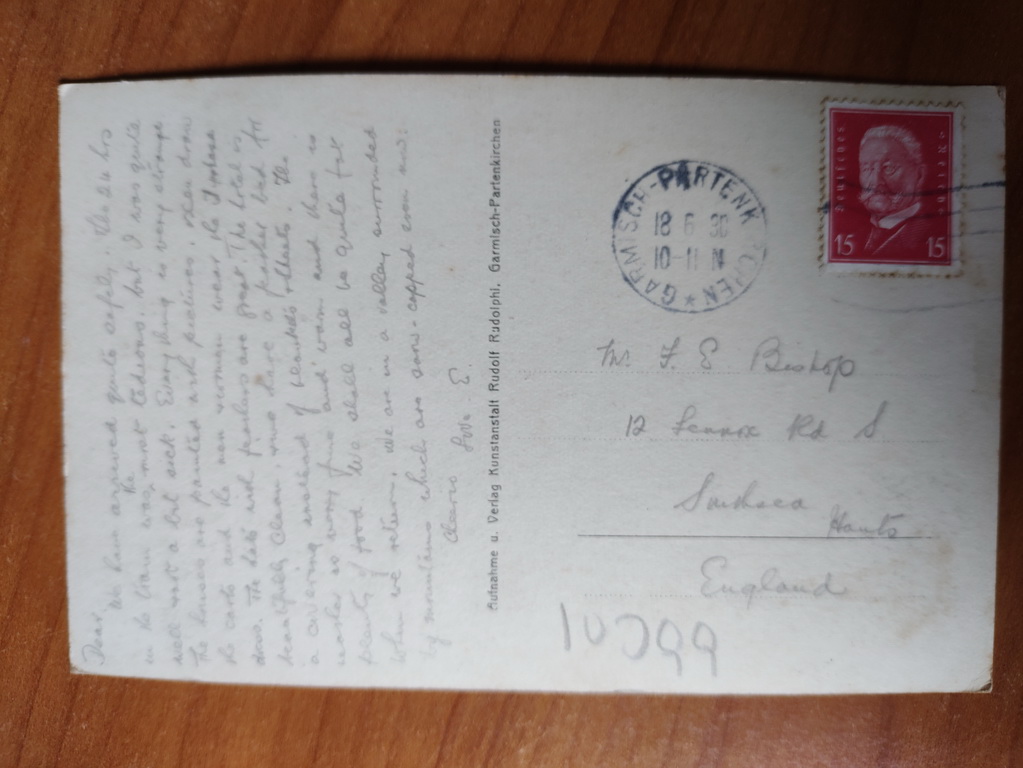 Dear
We have arrived quite safely. The 24 hrs
in the train was not tedious but I was quite
well not a bit sick. Everything is very strange
the houses are painted with pictures, oxen draw
the carts and the men women wear the
dress. The hats with feathers are great. The hotel is
beautifully clean, two have a feather bed for
a covering instead of blankets sheets. The
weather is very fine and warm and there is
plenty of food. We shall all be quite fat
when we return. We are in a valley surrounded
by mountains which are snow-capped even now.
Cheerio Love - E.
Aufnahme u. Verlag Kunstanstalt Rudolf Rudolphi, Garmisch-Partenkirchen
GARMISCH-PARTENKIRCHEN
18 6 30
10-11 N
DEUTSCHES REICH
15 15
Mr. F. E Bishop
12 Lennox Rd S
Southsea
Hants
England